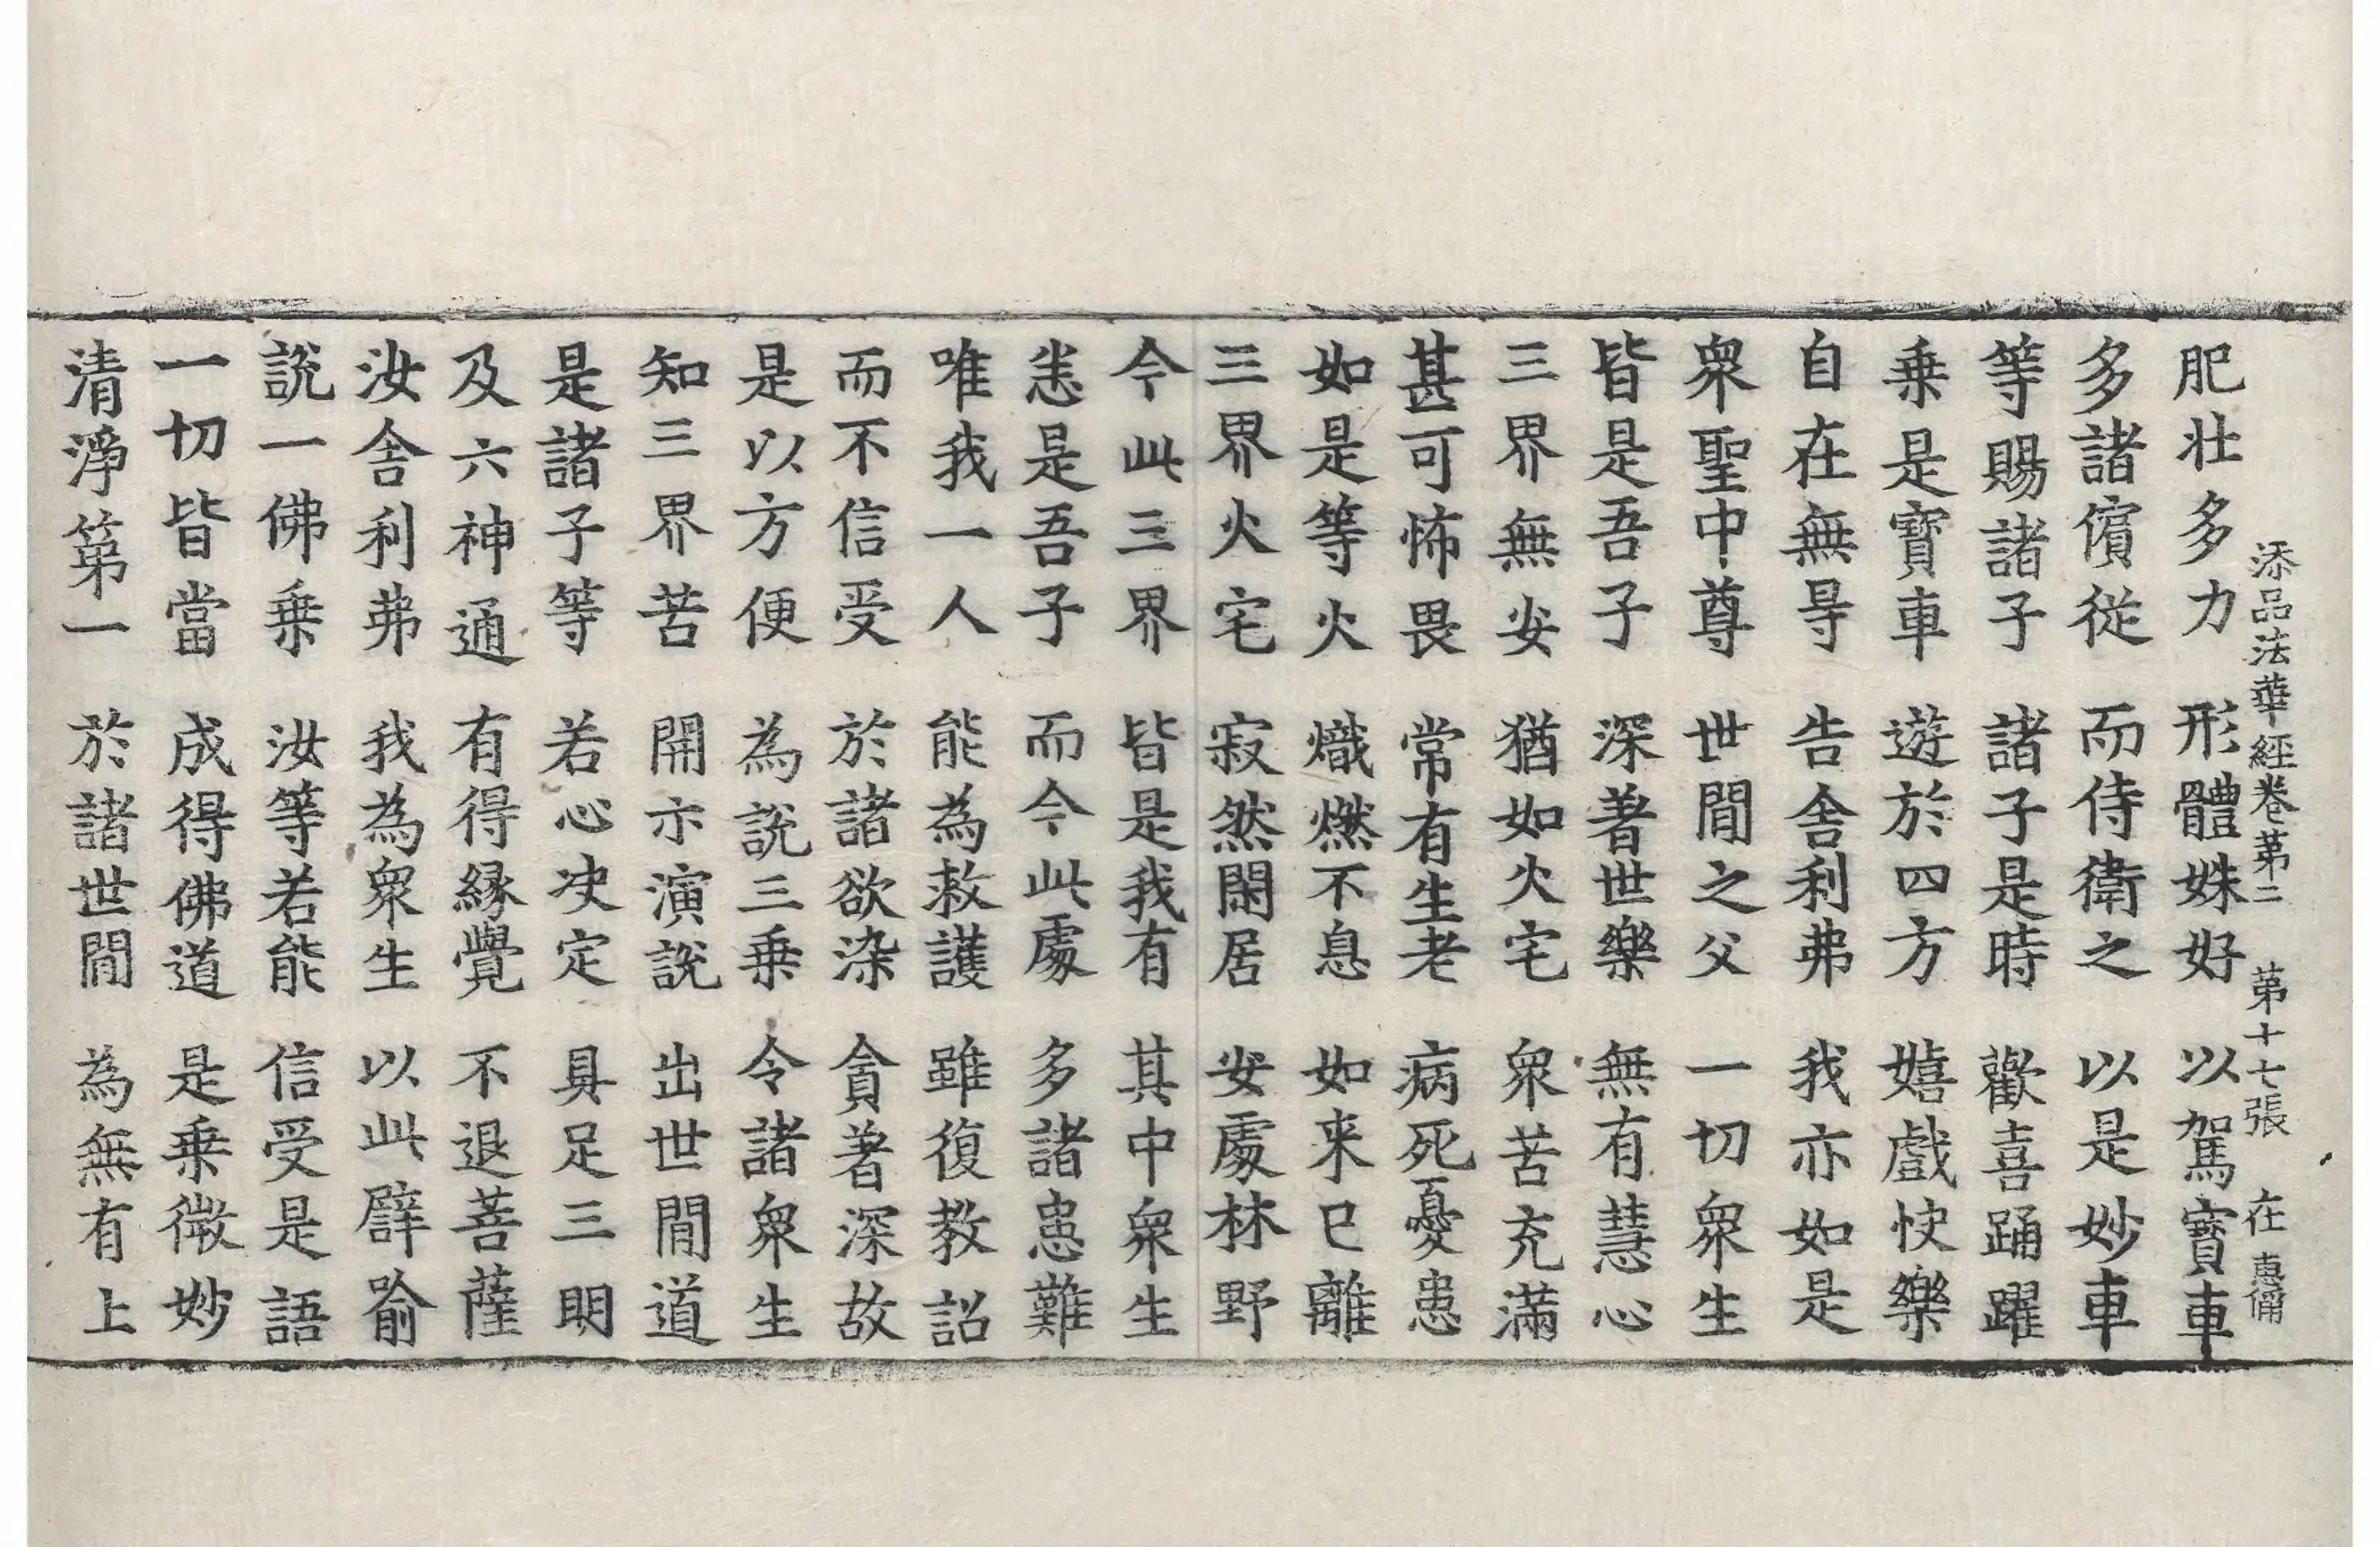 添品法華經卷苐二 苐十七張 在 惠僃
肥壮多力 形體姝好 以駕寳車
多諸儐從 而侍衛之 以是妙車
等賜諸子 諸子是時 歡喜踊躍
乗是寳車 遊於四方 嬉戲快樂
自在無㝵 告舎利弗 我亦如是
衆聖中尊 世間之父 一切衆生
皆是吾子 深著世樂 無有慧心
三界無安 猶如火宅 衆苦充滿
甚可怖畏 常有生老 病死憂患
如是等火 熾燃不息 如来已離
三界火宅 寂然閑居 安處林野
今此三界 皆是我有 其中衆生
悉是吾子 而今此處 多諸患難
唯我一人 能為救護 雖復教詔
而不信受 於諸欲染 貪著深故
是以方便 為說三乗 令諸衆生
知三界苦 開示演說 出世間道
是諸子等 若心决定 具足三明
及六神通 有得縁覺 不退菩薩
汝舎利弗 我為衆生 以此辟喻
說一佛乗 汝等若能 信受是語
一切皆當 成得佛道 是乗微妙
清淨第一 於諸世間 為無有上